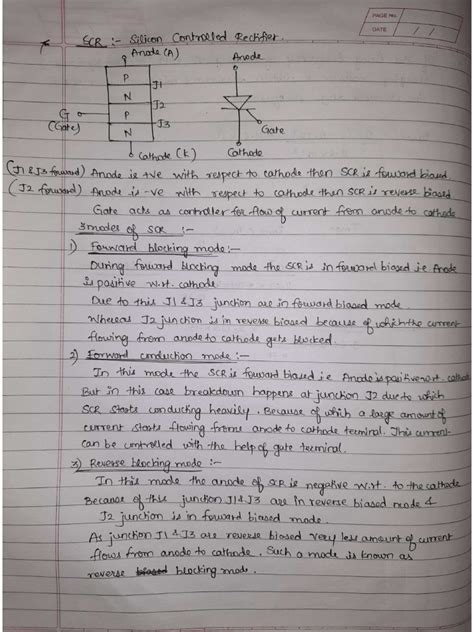 PAGE No.
DATE / /
* SCR :- Silicon Controlled Rectifier.
Anode (A)
Anode
P
N
P
N
J1
J2
J3
G
(Gate)
Gate
Cathode (k)
Cathode
(J1 & J3 forward) Anode is +ve with respect to cathode then SCR is forward biased
(J2 forward) Anode is -ve with respect to cathode then SCR is reverse biased
Gate acts as controller for flow of current from anode to cathode
3 modes of SCR :-
1) Forward blocking mode:-
During forward blocking mode the SCR is in forward biased i.e Anode
is positive w.r.t. cathode
Due to this J1 & J3 junction are in forward biased mode.
Whereas J2 junction is in reverse biased because of which the current
flowing from anode to cathode gets blocked.
2) Forward conduction mode:-
In this mode the SCR is forward biased i.e Anode is positive w.r.t. cathode
But in this case breakdown happens at junction J2 due to which
SCR starts conducting heavily. Because of which a large amount of
current starts flowing from anode to cathode terminal. This current
can be controlled with the help of gate terminal.
3) Reverse blocking mode :-
In this mode the anode of SCR is negative w.r.t. to the cathode
Because of this junction J1 & J3 are in reverse biased mode &
J2 junction is in forward biased mode.
As junction J1 & J3 are reverse biased very less amount of current
flows from anode to cathode. Such a mode is known as
reverse biased blocking mode.